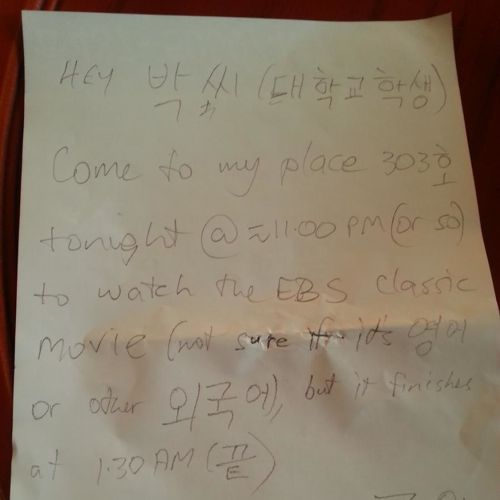 HEY 박 씨 (대학교학생)
Come to my place 303호
tonight @ ≈11.00 PM (or so)
to watch the EBS classic
movie (not sure if it's 영어
or other 외국어), but it finishes
at 1.30 AM (끝)